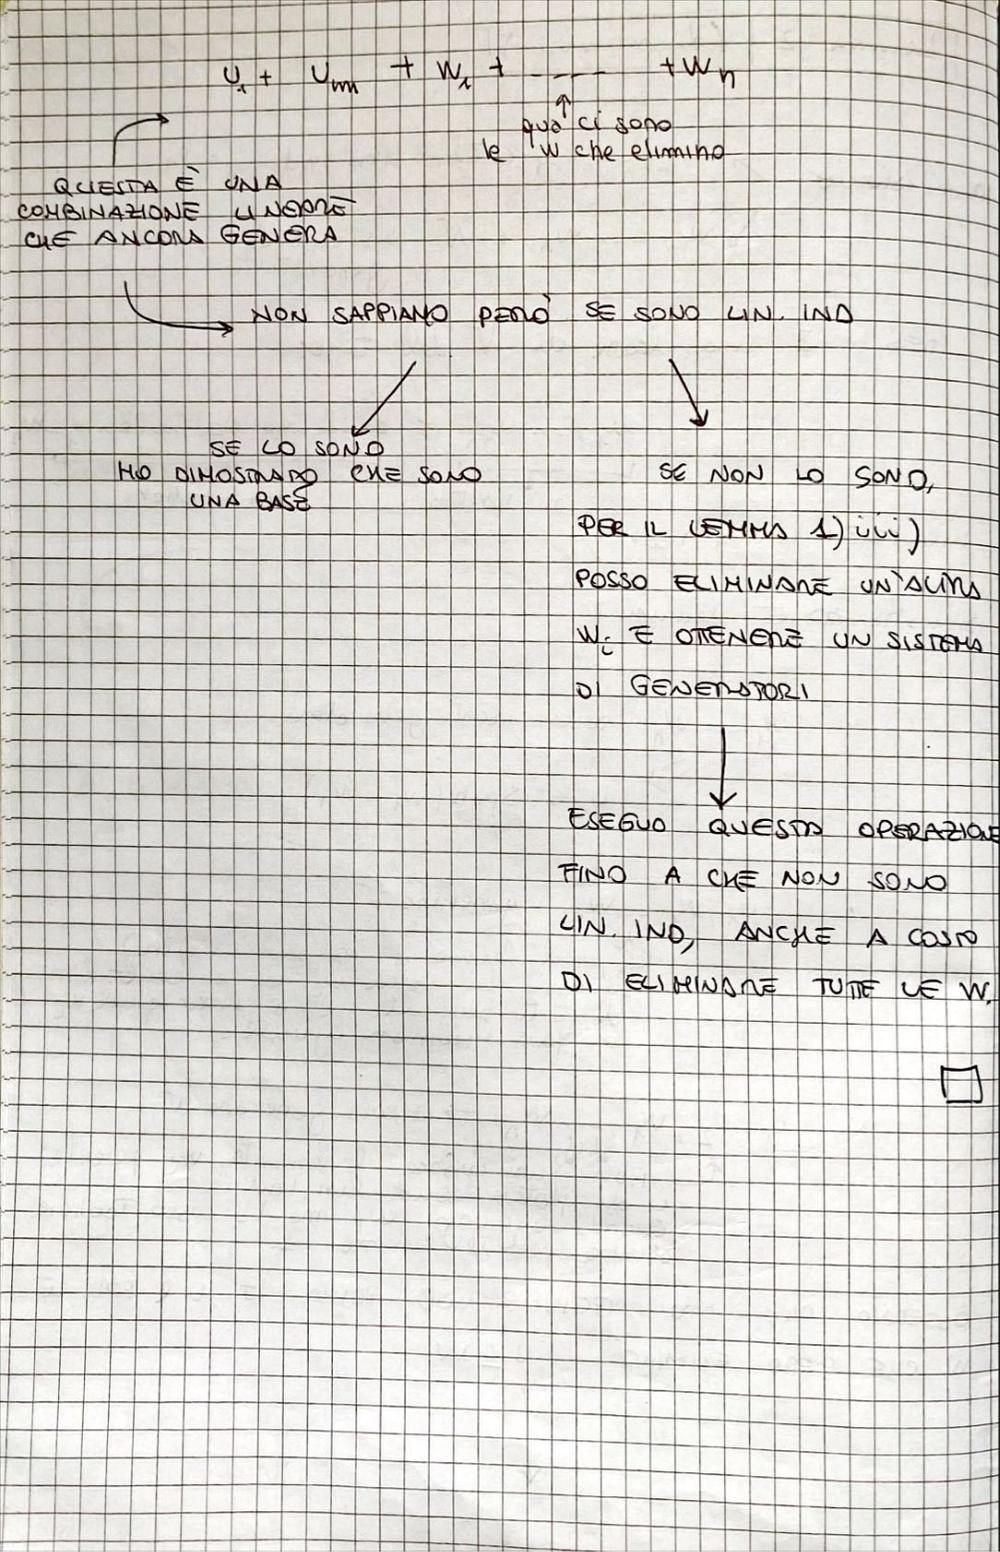 U₁ + Uₘ + W₁ + ---- + Wₙ
qua ci sono
le W che elimino
QUESTA È UNA
COMBINAZIONE LINEARE
CHE ANCORA GENERA
NON SAPPIAMO PERÒ SE SONO LIN. IND
SE LO SONO
HO DIMOSTRATO CHE SONO
UNA BASE
SE NON LO SONO,
PER IL LEMMA 1) iii)
POSSO ELIMINARE UN'ALTRA
Wᵢ E OTTENERE UN SISTEMA
DI GENERATORI
ESEGUO QUESTA OPERAZIONE
FINO A CHE NON SONO
LIN. IND, ANCHE A COSTO
DI ELIMINARE TUTTE LE W.